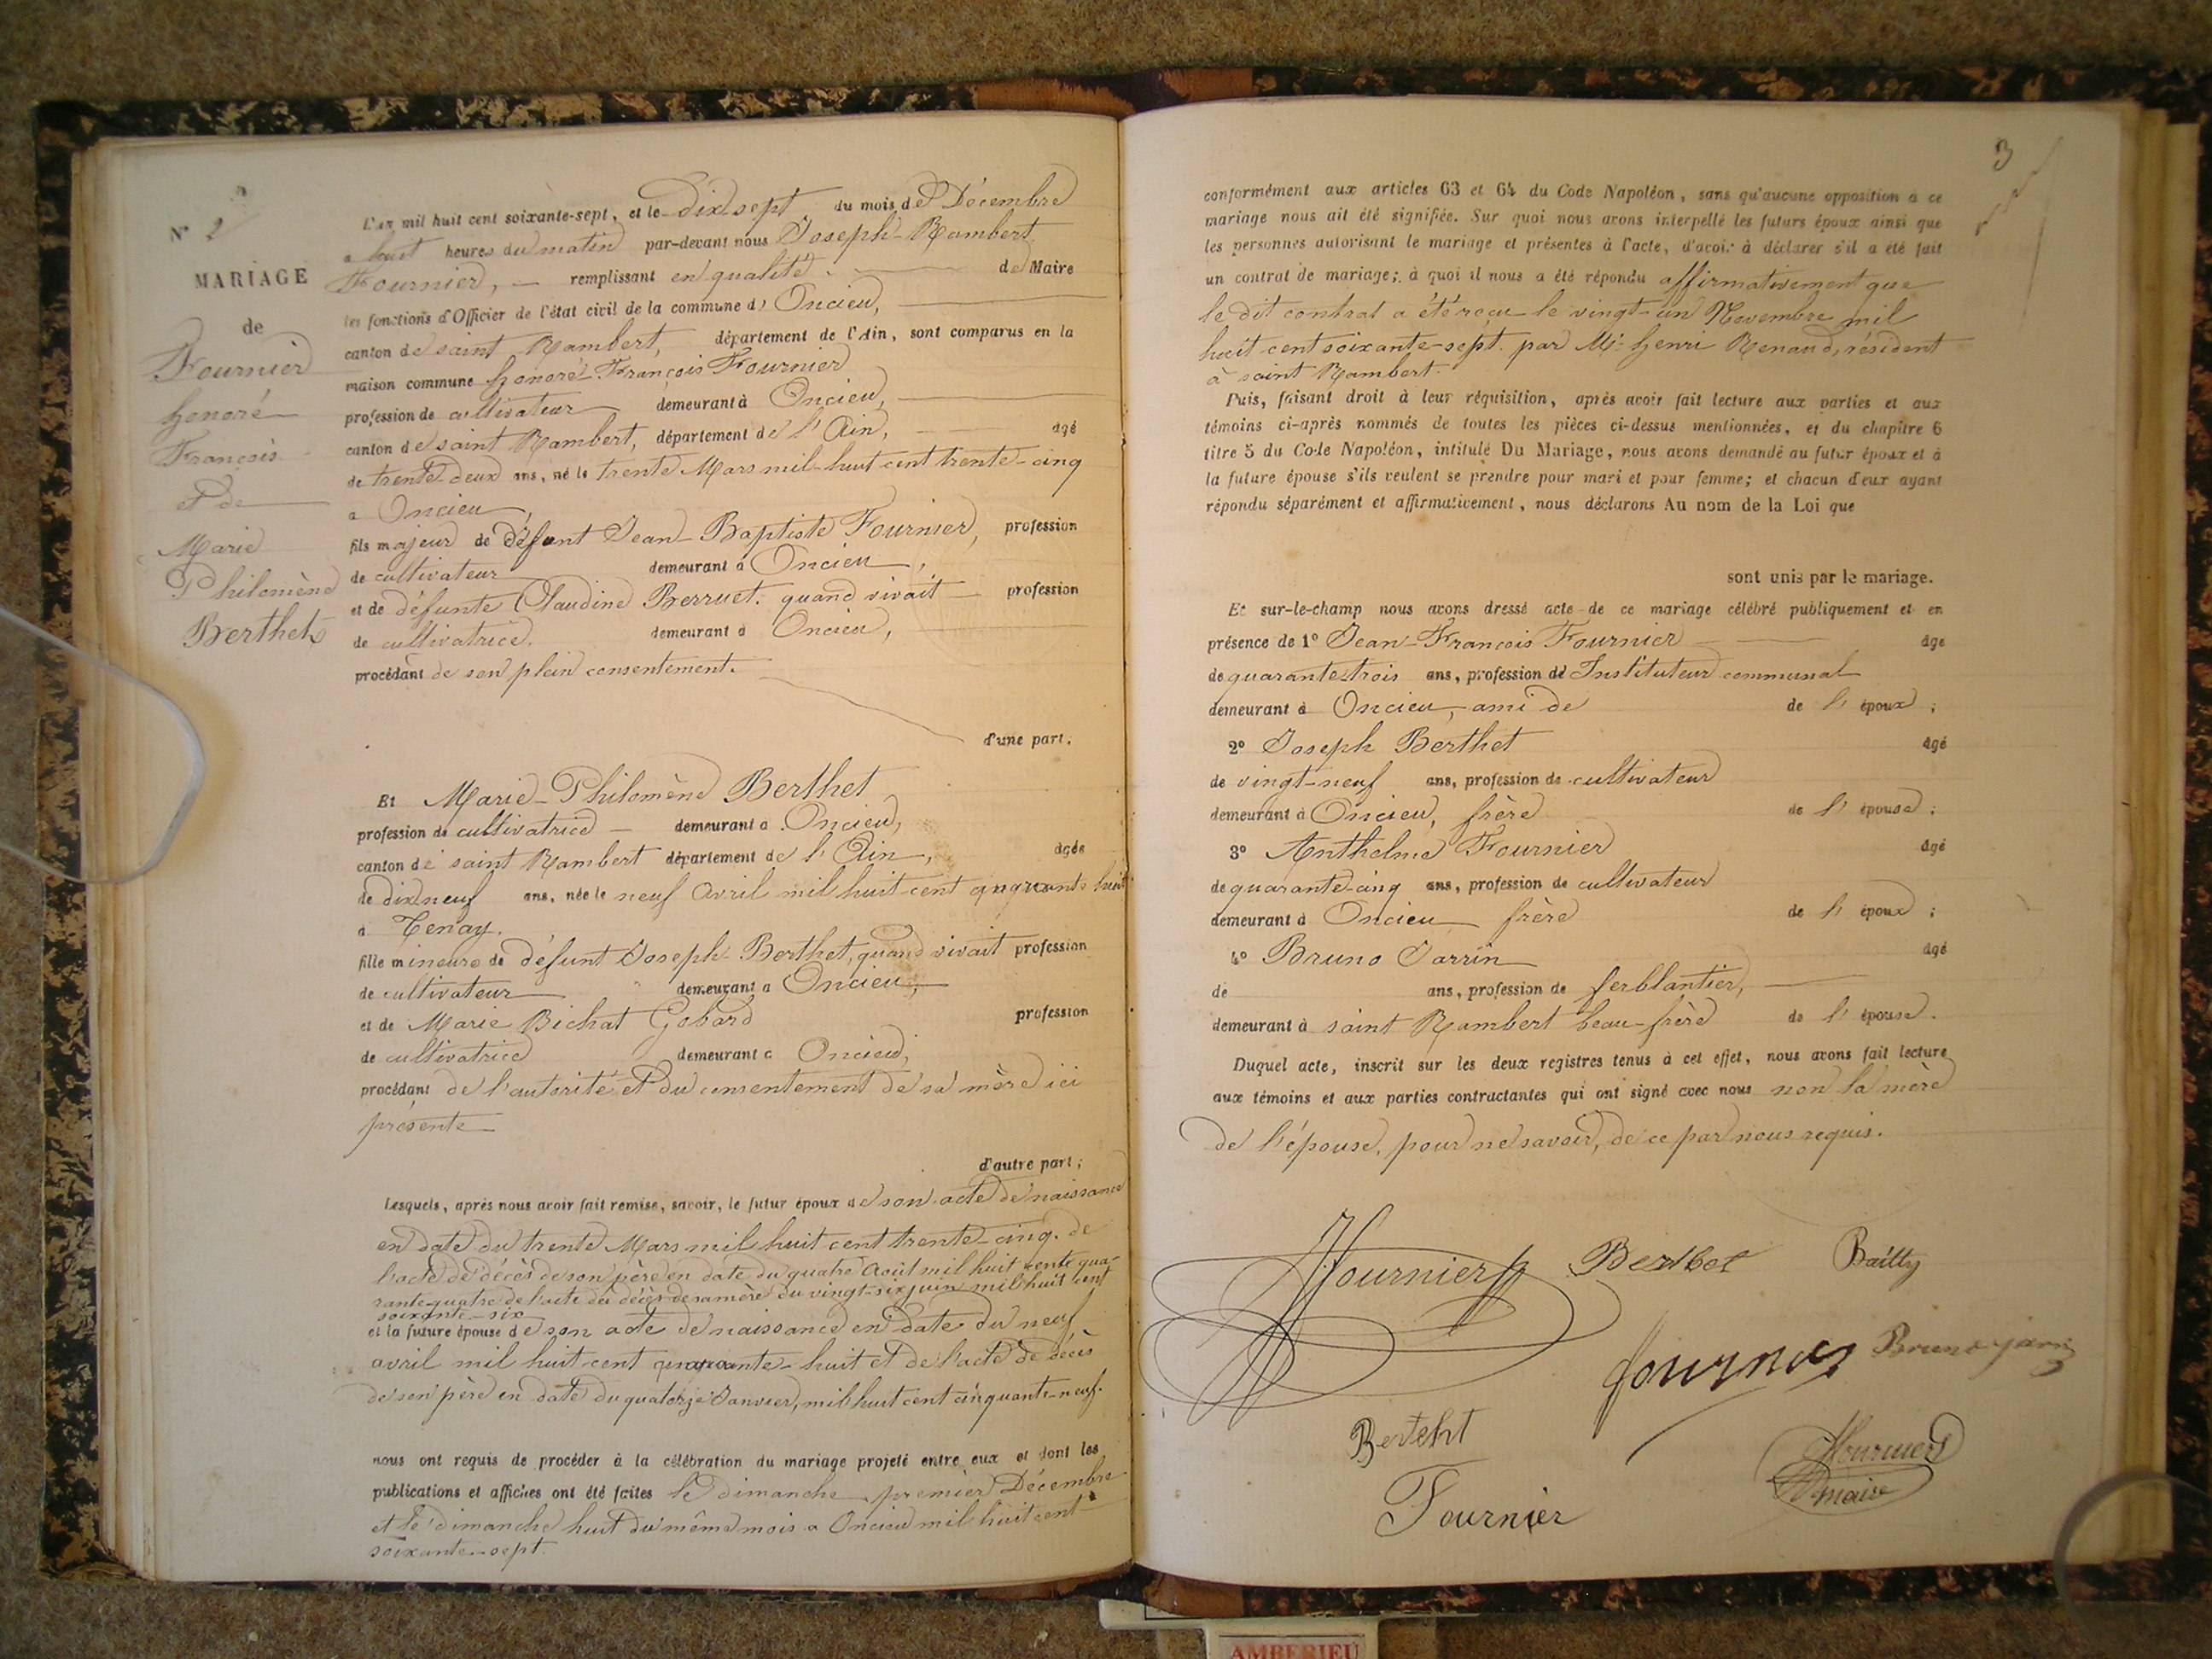 N° 2
MARIAGE
de
Fournier
honoré
François
et de
Marie
Philomène
Berthet
L'an mil huit cent soixante-sept, et le dix sept du mois de Décembre
a huit heures du matin par-devant nous Joseph-Rambert
Fournier, remplissant en qualité de Maire
les fonctions d'Officier de l'état civil de la commune d' Oncieu,
canton de saint Rambert, département de l'Ain, sont comparus en la
maison commune honoré-François Fournier
profession de cultivateur demeurant à Oncieu,
canton de saint Rambert, département de l'Ain, agé
de trente-deux ans, né le trente Mars mil-huit cent trente-cinq
a Oncieu,
fils majeur de défunt Jean-Baptiste Fournier, profession
de cultivateur demeurant à Oncieu,
et de défunte Claudine Berruet. quand vivait profession
de cultivatrice. demeurant à Oncieu,
procédant de son plein consentement.
d'une part;
Et Marie-Philomène Berthet
profession de cultivatrice demeurant a Oncieu,
canton de saint Rambert département de l'Ain, agée
de dix neuf ans, née le neuf Avril mil huit-cent quarante huit
à Tenay.
fille mineure de défunt Joseph-Berthet, quand vivait profession
de cultivateur demeurant a Oncieu,
et de Marie Bichat Gobard profession
de cultivatrice demeurant a Oncieu,
procédant de l'autorité et du consentement de sa mère ici
présente
d'autre part;
Lesquels, après nous avoir fait remise, savoir, le futur époux de son acte de naissance
en date du trente Mars mil huit cent trente-cinq. de
l'acte de décès de son père en date du quatre Août mil huit cente qua-
rante-quatre de l'acte de décès de sa mère du vingt-six juin mil huit cent
soixante-six
et la future épouse de son acte de naissance en date du neuf
avril mil huit-cent quarante-huit et de l'acte de décès
de son père en date du quatorze Janvier, mil huit cent cinquante-neuf.
nous ont requis de procéder à la célébration du mariage projeté entre eux et dont les
publications et affiches ont été faites le dimanche premier Décembre
et le dimanche huit du même mois a Oncieu mil huit cent
soixante-sept.
3
conformément aux articles 63 et 64 du Code Napoléon, sans qu'aucune opposition à ce
mariage nous ait été signifiée. Sur quoi nous avons interpellé les futurs époux ainsi que
les personnes autorisant le mariage et présentes à l'acte, d'avoir à déclarer s'il a été fait
un contrat de mariage; à quoi il nous a été répondu affirmativement que
le dit contrat a été reçu le vingt-un Novembre mil
huit-cent soixante-sept. par Me henri Renaud, résident
à saint Rambert.
Puis, faisant droit à leur réquisition, après avoir fait lecture aux parties et aux
témoins ci-après nommés de toutes les pièces ci-dessus mentionnées, et du chapitre 6
titre 5 du Code Napoléon, intitulé Du Mariage, nous avons demandé au futur époux et à
la future épouse s'ils veulent se prendre pour mari et pour femme; et chacun d'eux ayant
répondu séparément et affirmativement, nous déclarons Au nom de la Loi que
sont unis par le mariage.
Et sur-le-champ nous avons dressé acte de ce mariage célébré publiquement et en
présence de 1° Jean-François Fournier age
de quarante trois ans, profession de Instituteur communal
demeurant à Oncieu, ami de de l'époux;
2° Joseph Berthet agé
de vingt-neuf ans, profession de cultivateur
demeurant à Oncieu, frère de l'épouse;
3° Anthelme Fournier agé
de quarante-cinq ans, profession de cultivateur
demeurant à Oncieu frère de l'époux;
4° Bruno Jarrin agé
de ans, profession de ferblantier,
demeurant à saint Rambert beau-frère de l'épouse.
Duquel acte, inscrit sur les deux registres tenus à cet effet, nous avons fait lecture
aux témoins et aux parties contractantes qui ont signé avec nous non la mère
de l'épouse, pour ne savoir, de ce par nous requis.
Fournier Berthet Bailly
fournier Bruno jarrin
Berteht Fournier
maire
Fournier
AMBERIEU